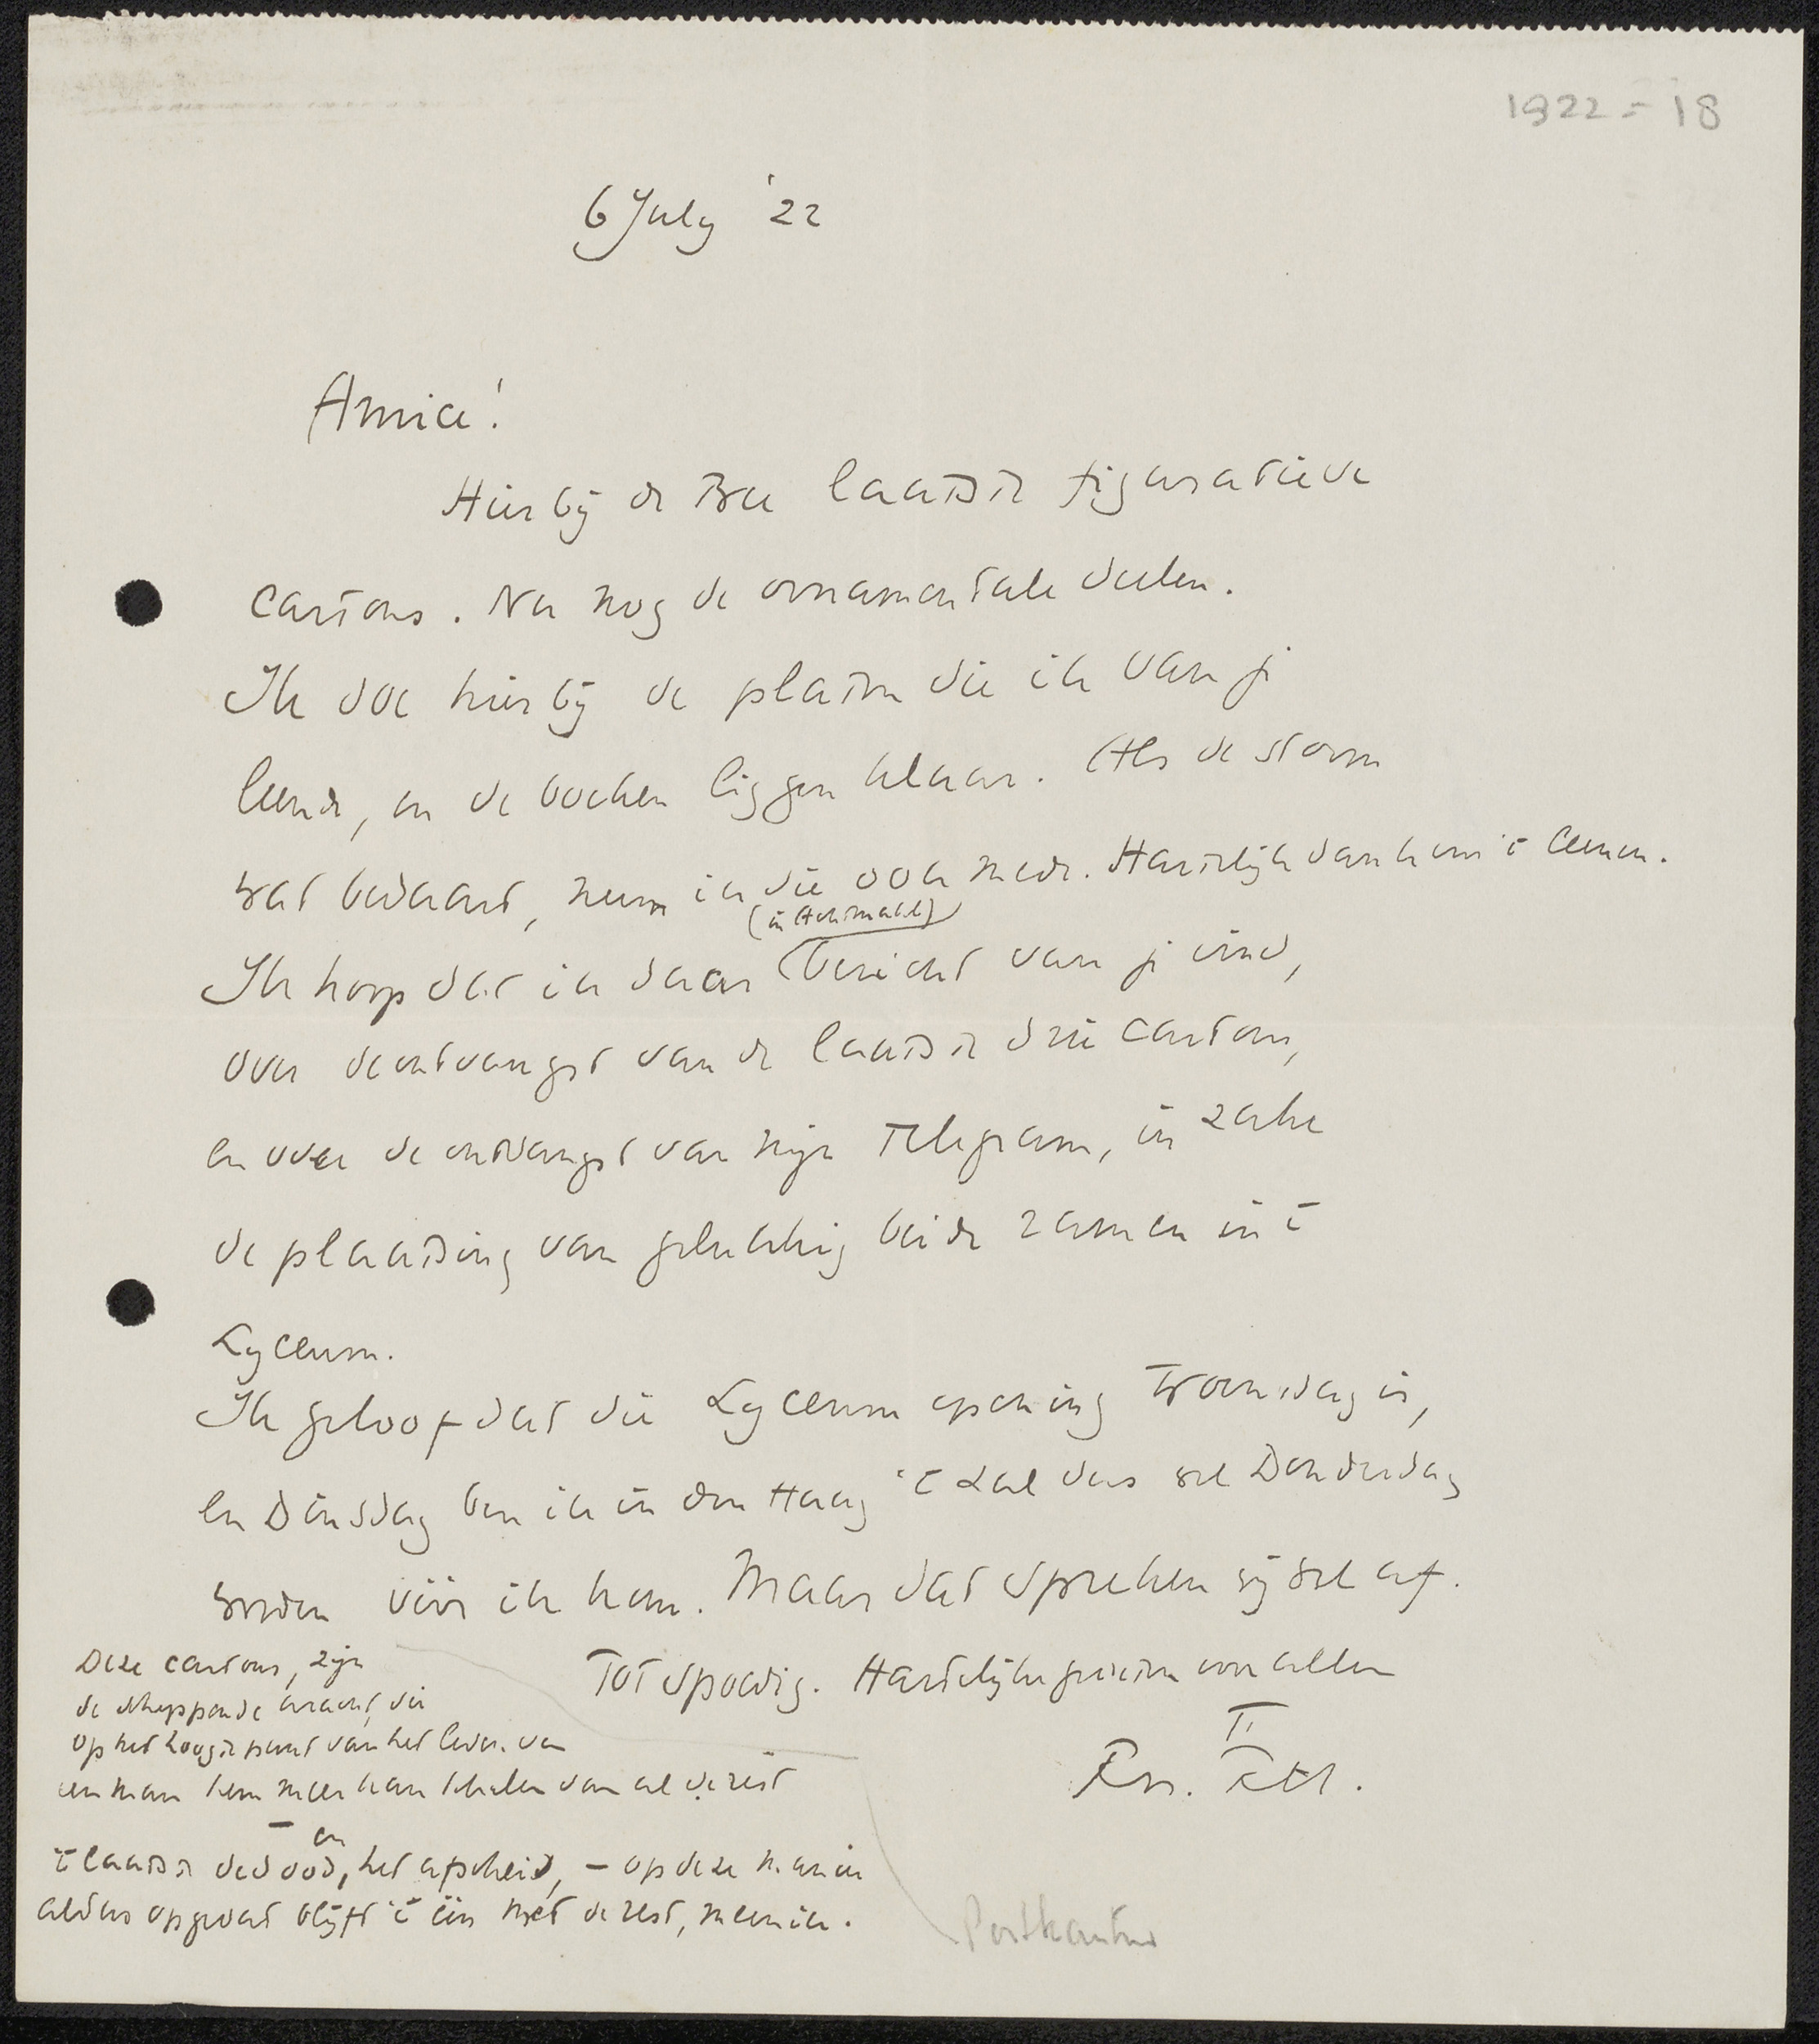 1922 = 18
6 July '22
Amice!
Hierbij de twee laatste figuratieve
cartons. Nu nog de ornamentale deelen.
Ik doe hierbij de platen die ik van je
leende, en de boeken liggen klaar. Als de storm
wat bedaart, neem ik die ook mede. Hartelijk dank voor 't leenen.
(in Huize
Ik hoop dat ik daar bericht van je vind,
over de ontvangst van de laatste drie cartons,
en over de ontvangst van mijn Telegram, in zake
de plaatsing van gelukkig beide zamen in 't
Lyceum.
Ik geloof dat die Lyceum opening Woensdag is,
en Dinsdag ben ik in den Haag 't zal dus wel Donderdag
worden vóór ik kom. Maar dat spreken wij wel af.
Tot spoedig. Hartelijke groeten van allen
t.t.
RN. RH.
Deze cartons, zijn
de scheppende kracht, die
op het hoogste punt van het leven van
een man hem meer kan schelen dan al de rest
en
't laatste de dood, het afscheid, – op deze manier
aldus opgevat blijft 't één met de rest, meen ik.
Postkantoor